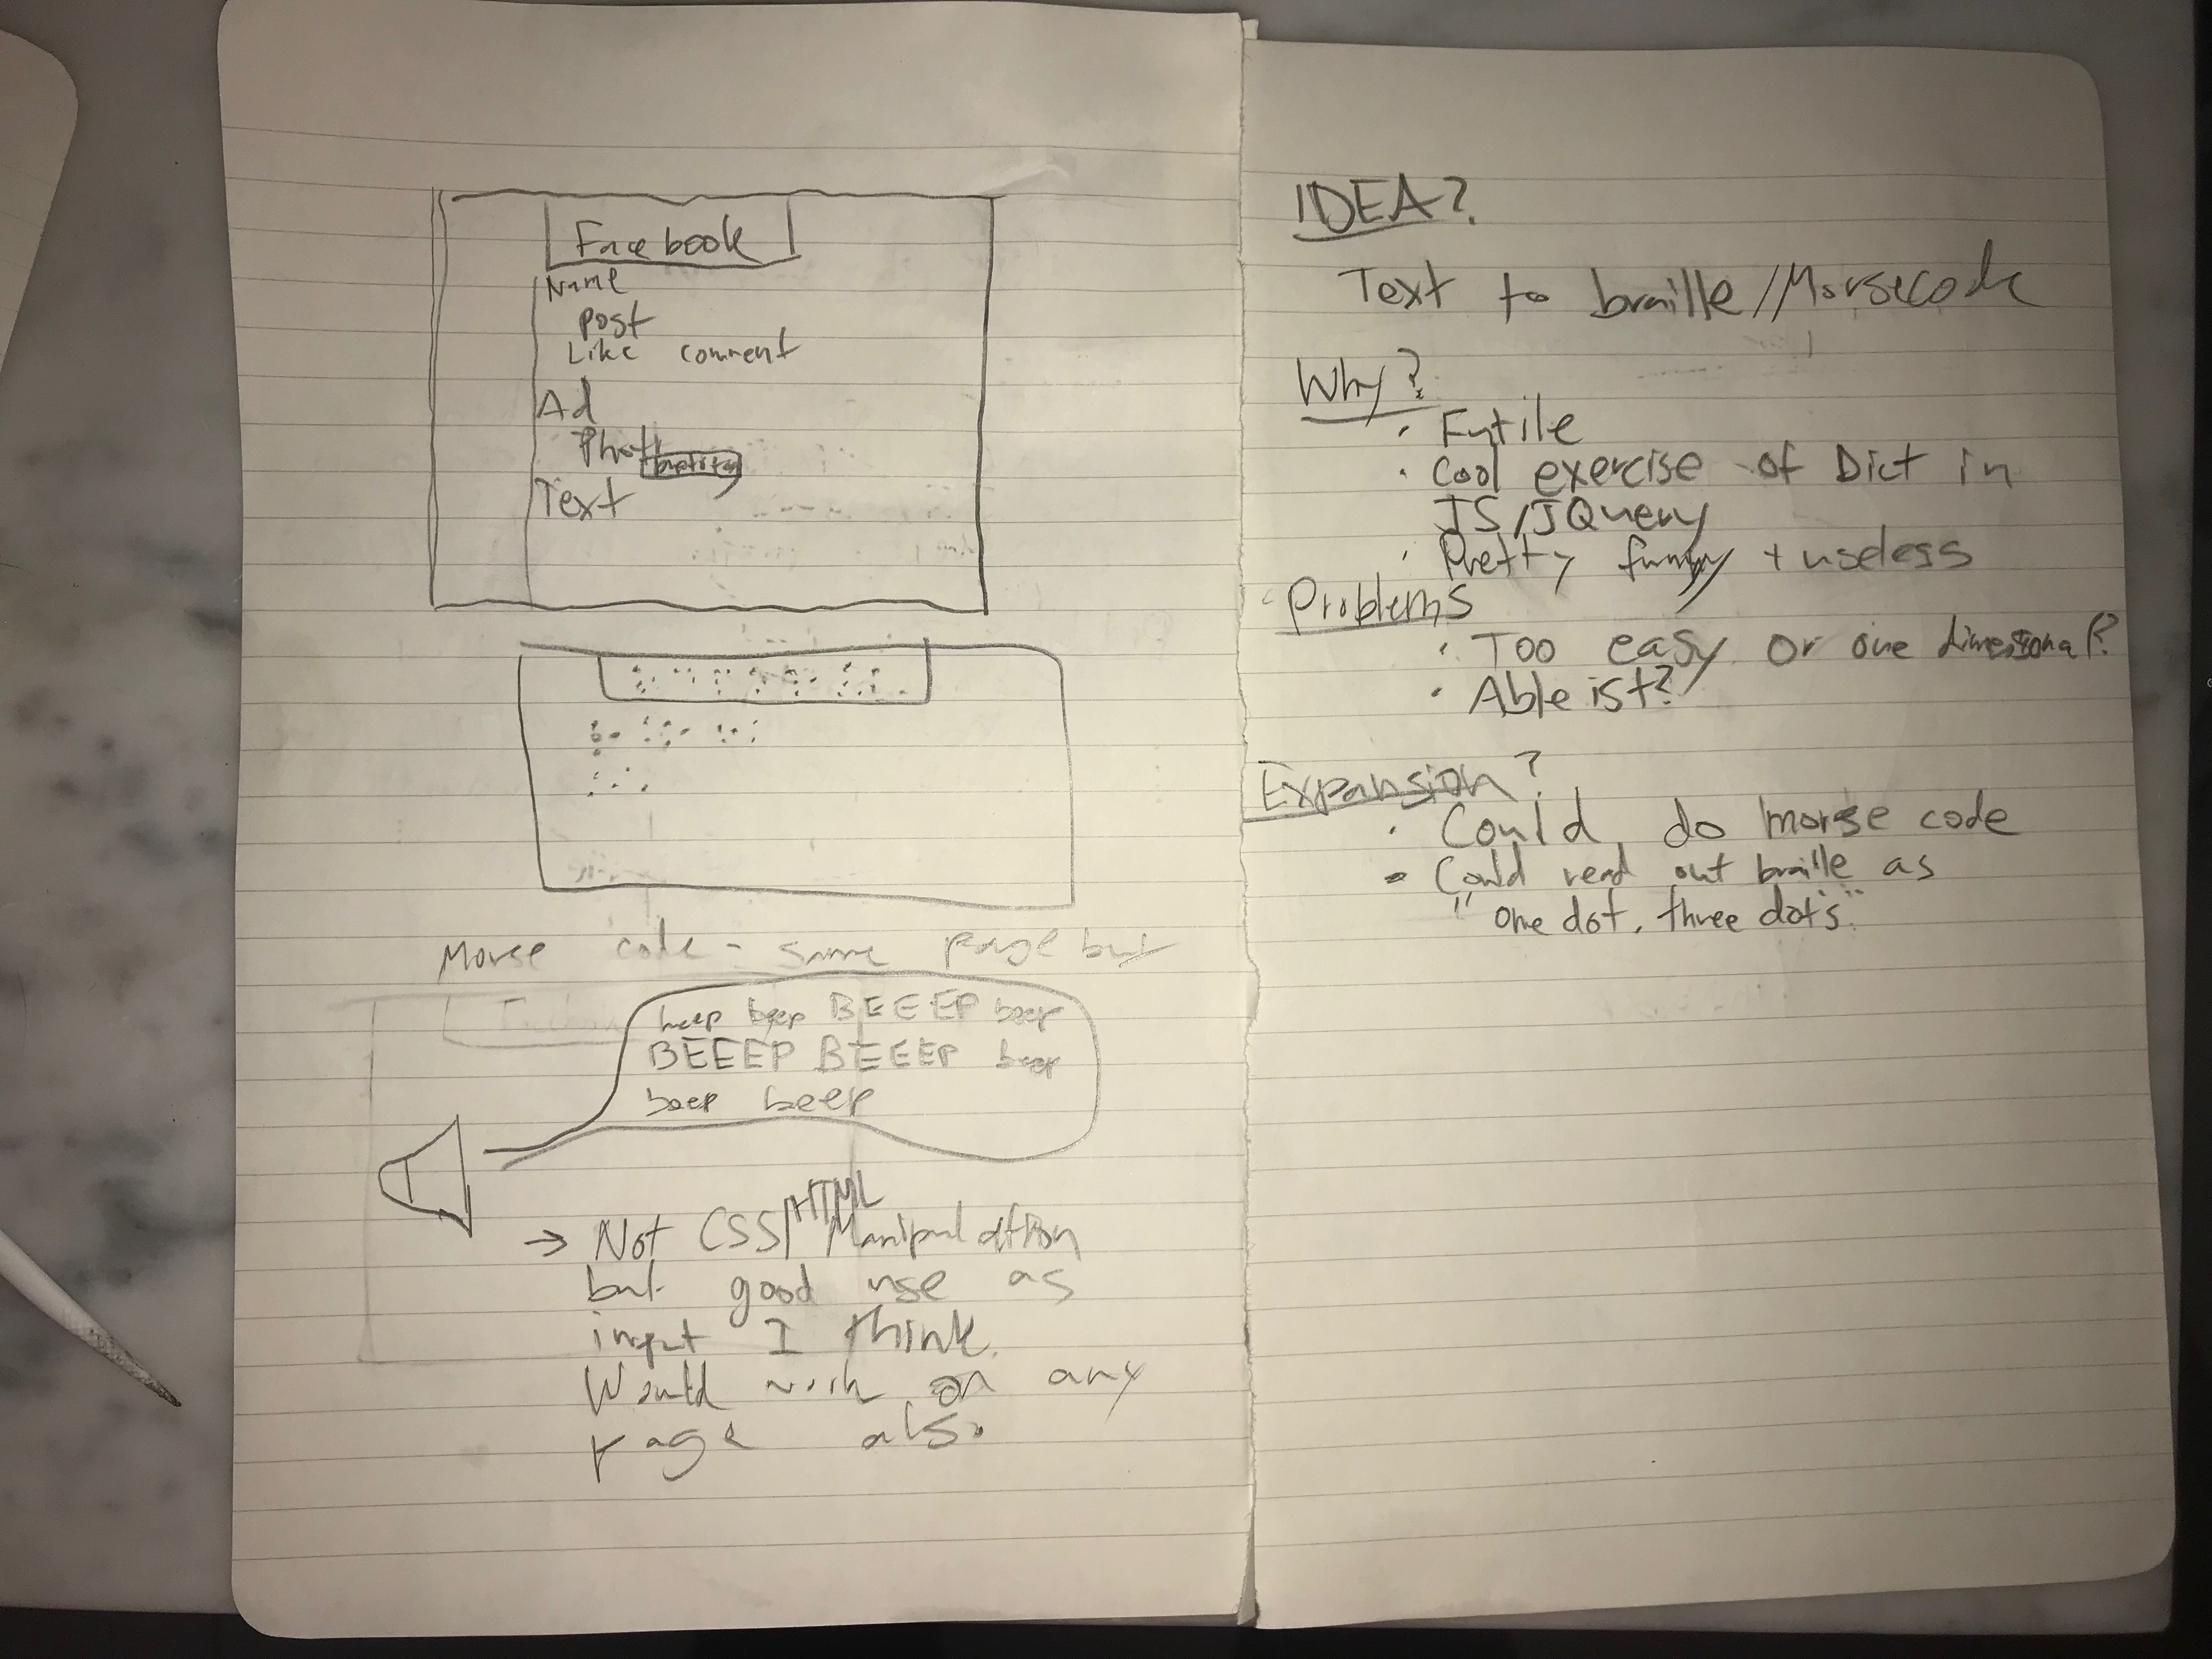 Facebook
Name
post
Like comment
Ad
Text
Morse code - same page but
beep beep BEEEP beep
BEEEP BEEEP beep
beep beep
→ Not CSS/HTML Manipulation
but good use as
input I think.
Would work on any
page also.
IDEA?
Text to braille//Morsecode
Why?
· Futile
· Cool exercise of Dict in
JS/JQuery
· Pretty funny + useless
Problems
· Too easy or one dimensional?
· Ableist?
Expansion?
· Could do morse code
- Could read out braille as
"one dot, three dots"